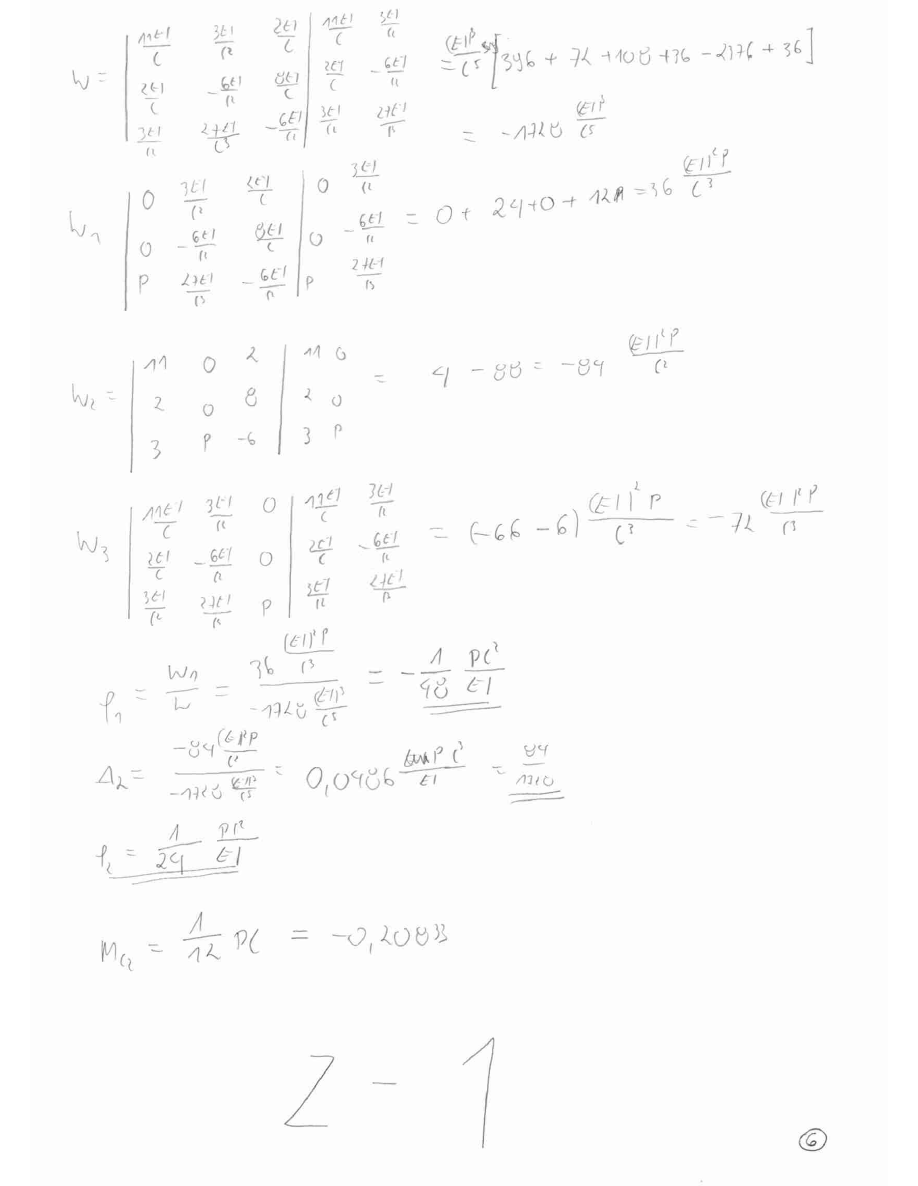 W = | 11EI/l 3EI/l² 2EI/l | 11EI/l 3EI/l²
2EI/l -6EI/l² 8EI/l | 2EI/l -6EI/l²
3EI/l² 27EI/l³ -6EI/l² | 3EI/l² 27EI/l³
= (EI)³/l⁵ [396 + 72 + 108 + 36 - 2376 + 36]
= -1728 (EI)³/l⁵
W1 | 0 3EI/l² 2EI/l | 0 3EI/l²
0 -6EI/l² 8EI/l | 0 -6EI/l²
P 27EI/l³ -6EI/l² | P 27EI/l³
= 0 + 24 + 0 + 12 = 36 (EI)²P/l³
W2 = | 11 0 2 | 11 0
2 0 8 | 2 0
3 P -6 | 3 P
= 4 - 88 = -84 (EI)²P/l²
W3 | 11EI/l 3EI/l² 0 | 11EI/l 3EI/l²
2EI/l -6EI/l² 0 | 2EI/l -6EI/l²
3EI/l² 27EI/l² P | 3EI/l² 27EI/l³
= (-66 - 6) (EI)²P/l³ = -72 (EI)²P/l³
φ1 = W1/W = 36 (EI)²P/l³ / -1728 (EI)³/l⁵ = -1/48 Pl²/EI
Δ2 = -84 (EI)²P/l² / -1728 (EI)³/l⁵ = 0,0486 Pl³/EI = 84/
φ2 = 1/24 Pl²/EI
= 1/12 Pl = -0,20833
Z - 1
6